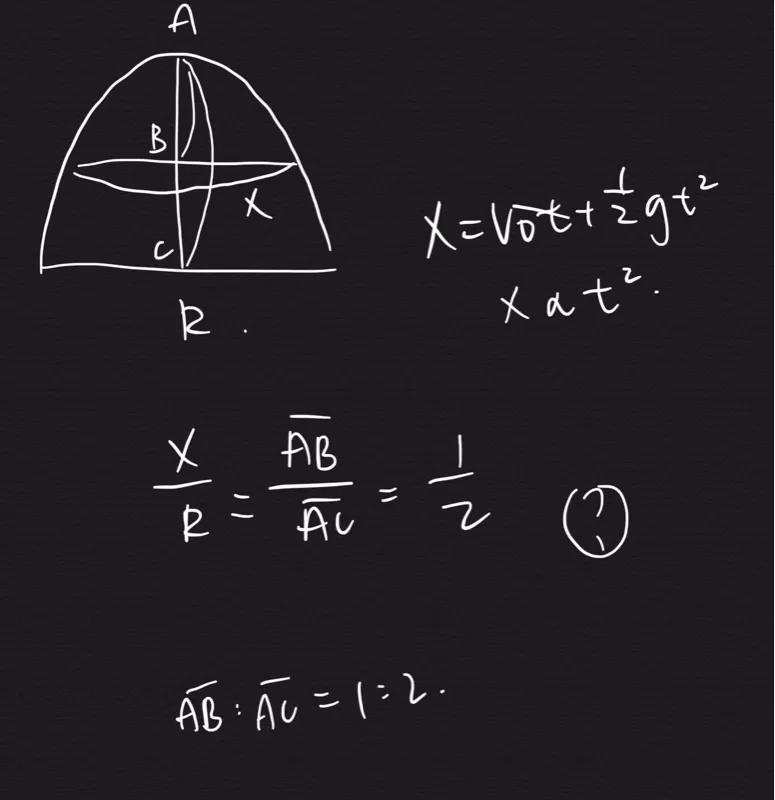 A
B
X
C
R.
X=V0t+1/2gt²
X α t².
X/R = AB/AC = 1/2 (?)
AB : AC = 1:2.